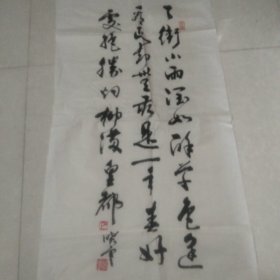 天街小雨润如酥草色遥
看近却无最是一年春好
处绝胜烟柳满皇都